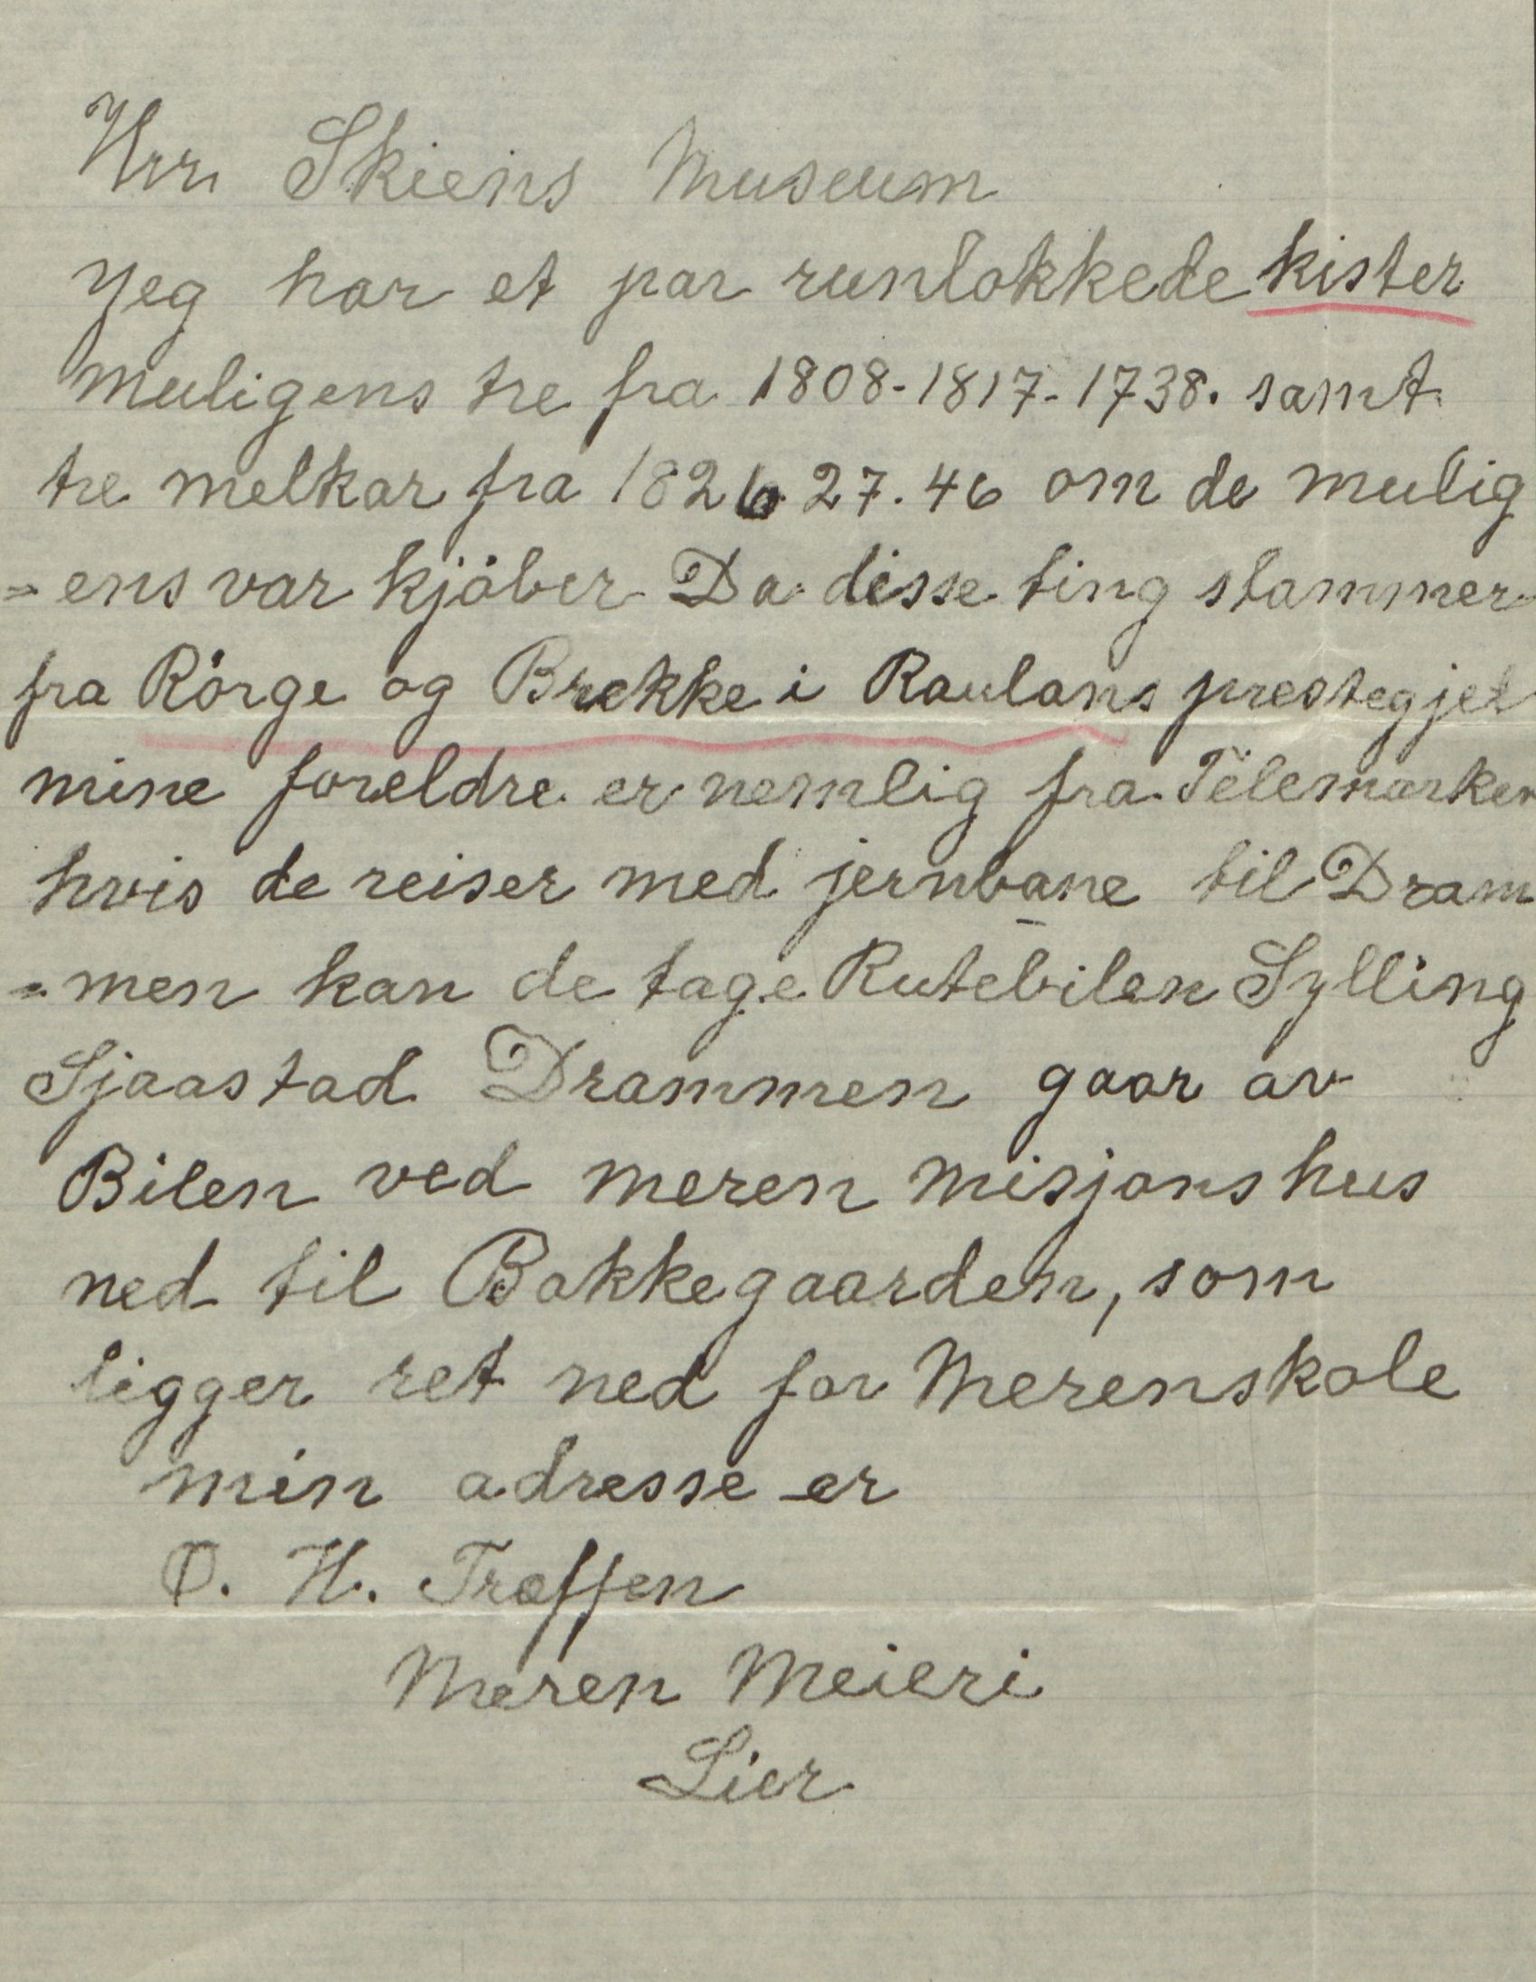 Herr Skiens Museum
Jeg har et par runlokkede kister
muligens tre fra 1808-1817-1738. samt
tre melkar fra 1826 27. 46 om de mulig
=ens var kjöber Da disse ting stammer
fra Rörge og Brekke i Raulans prestegjel
mine foreldre er nemlig fra Telemarken
hvis de reiser med jernbane til Dram
=men kan de tage Rutebilen Sylling
Sjaastad Drammen gaar av
Bilen ved meren misjonshus
ned til Bakkegaarden, som
ligger ret ned for Merenskole
min adresse er
O. H. Træffen
Meren Meieri
Lier